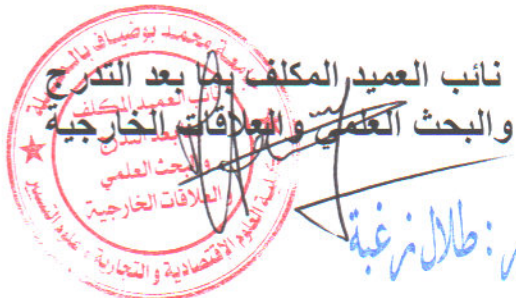 نائب العميد المكلف بما بعد التدرج
والبحث العلمي والعلاقات الخارجية
جامعة محمد بوضياف
نائب العميد المكلف
بما بعد التدرج
والبحث العلمي
والعلاقات الخارجية
كلية العلوم الاقتصادية و التجارية و علوم التسيير
طلال زغبة